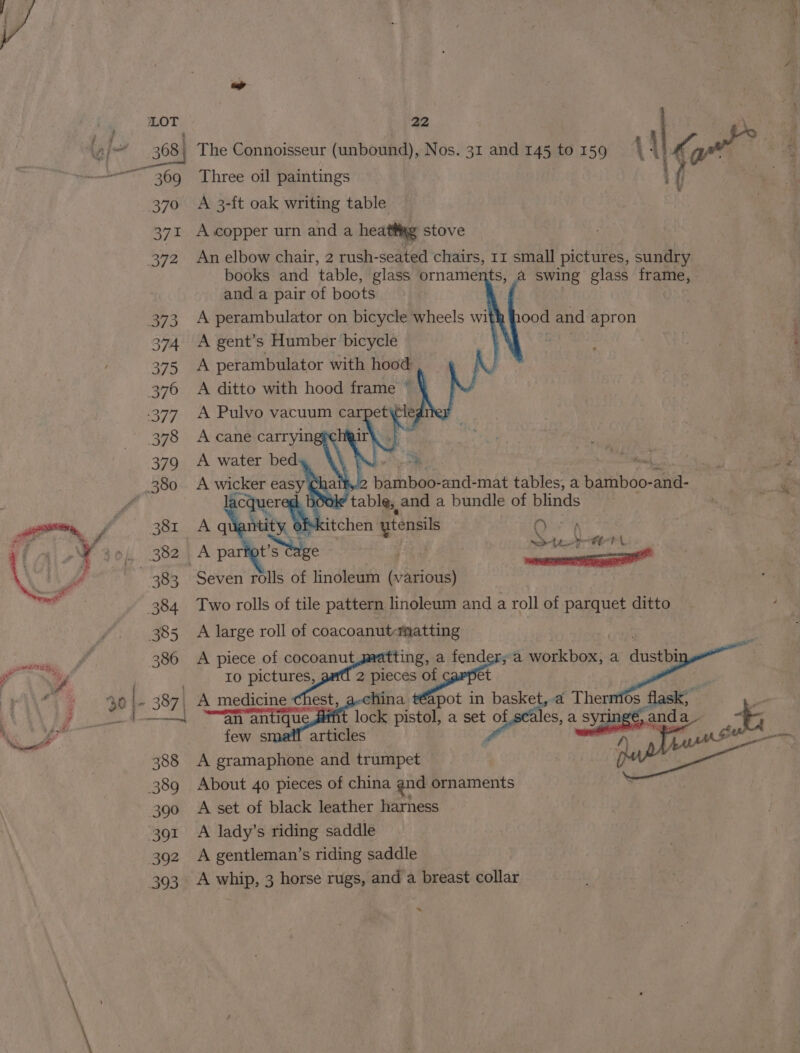 LOT 22
368 The Connoisseur (unbound), Nos. 31 and 145 to 159
369 Three oil paintings
370 A 3-ft oak writing table
371 A copper urn and a heating stove
372 An elbow chair, 2 rush-seated chairs, 11 small pictures, sundry
books and table, glass ornaments, a swing glass frame,
and a pair of boots
373 A perambulator on bicycle wheels with hood and apron
374 A gent's Humber bicycle
375 A perambulator with hood
376 A ditto with hood frame
377 A Pulvo vacuum carpet cleaner
378 A cane carrying chair
379 A water bed
380 A wicker easy chair, 2 bamboo-and-mat tables, a bamboo-and-
lacquered book table, and a bundle of blinds
381 A quantity of kitchen utensils
382 A parrot's cage
383 Seven rolls of linoleum (various)
384 Two rolls of tile pattern linoleum and a roll of parquet ditto
385 A large roll of coacoanut-matting
386 A piece of cocoanut matting, a fender, a workbox, a dustbin,
10 pictures, and 2 pieces of carpet
30 387 A medicine chest, a china teapot in basket, a Thermos flask,
an antique flint lock pistol, a set of scales, a syringe, and a
few small articles
388 A gramaphone and trumpet
389 About 40 pieces of china and ornaments
390 A set of black leather harness
391 A lady's riding saddle
392 A gentleman's riding saddle
393 A whip, 3 horse rugs, and a breast collar